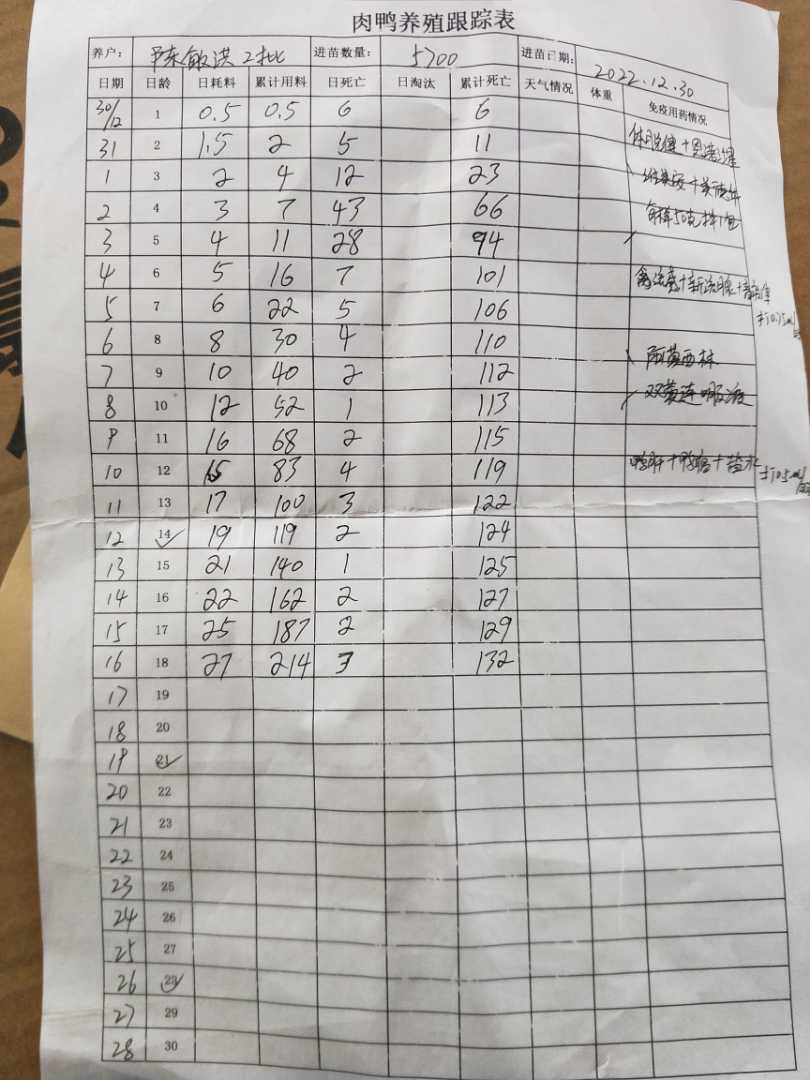 肉鸭养殖跟踪表
养户： 陈敏洪 2批 进苗数量： 5700 进苗日期： 2022.12.30
日期 日龄 日耗料 累计用料 日死亡 日淘汰 累计死亡 天气情况 体重 免疫用药情况
30/12 1 0.5 0.5 6 6
31 2 1.5 2 5 11
1 3 2 4 12 23
2 4 3 7 43 66 每样50克拌1包
3 5 4 11 28 94
4 6 5 16 7 101
5 7 6 22 5 106 打0.75ml
6 8 8 30 4 110 阿莫西林
7 9 10 40 2 112 双黄连口服液
8 10 12 52 1 113
9 11 16 68 2 115
10 12 15 83 4 119 鸭肝+鸭瘟+盐水 打0.5ml
11 13 17 100 3 122
12 14 19 119 2 124
13 15 21 140 1 125
14 16 22 162 2 127
15 17 25 187 2 129
16 18 27 214 3 132
17 19
18 20
19 21
20 22
21 23
22 24
23 25
24 26
25 27
26 28
27 29
28 30